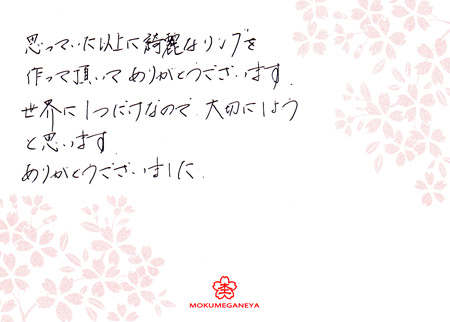 思っていた以上に綺麗なリングを
作って頂いてありがとうございます.
世界に1つだけなので 大切にしよう
と思います.
ありがとうございました.
MOKUMEGANEYA